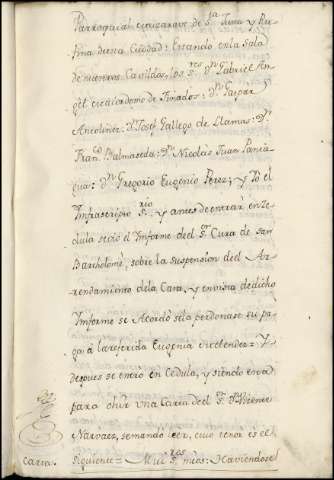 Parroquial extramuros de S.ta Justa y Ru-
fina de esta Ciudad: Estando en la Sala
de nuestros Cavildos, los S.res D.n Gabriel An-
gel Maiordomo de Finados: D.n Gaspar
Antolinez: D.n Joseph Gallego de Llamas: D.n
Fran.co Balmaseda: D.n Nicolas Juan Pania-
gua: D.n Gregorio Eugenio Perez; y Yo el
Infrascripto S.rio y antes de entrar en Ce-
dula se dió el Informe del S.or Cura de San
Bartholomé, sobre la suspension del Ar-
rendamiento dela Casa, y en vista de dicho
Informe se Acordó se la perdonase su pa-
ga á la referida Eugenia Melendez: Y
despues se entró en Cedula, y siendo
para ohir una Carta del S.or D.n
Narvaez, se mandó leer, cuio tenor es el
Carta. Siguiente = Mui S.res mios: Haviendose